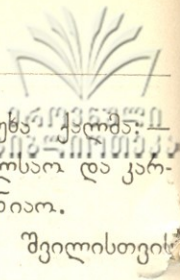 ეროვნული
ბიბლიოთეკა
უხა ქალმა: —
ლსაო და კარ-
ნიაო.
შვილისთვის